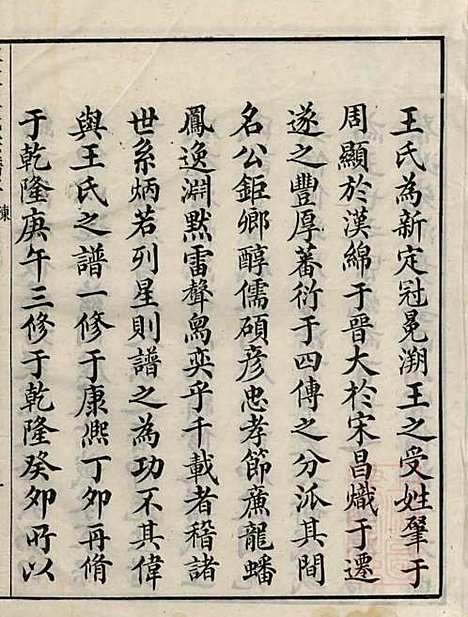 王氏為新定冠冕溯王之受姓肇于
周顯於漢綿于晋大於宋昌熾于遷
遂之豐厚蕃衍于四傳之分派其間
名公鉅卿醇儒碩彦忠孝節廉龍蟠
鳳逸淵默雷聲舄奕乎千載者稽諸
世系炳若列星則譜之為功不其偉
與王氏之譜一修于康熙丁卯再脩
于乾隆庚午三修于乾隆癸卯所以